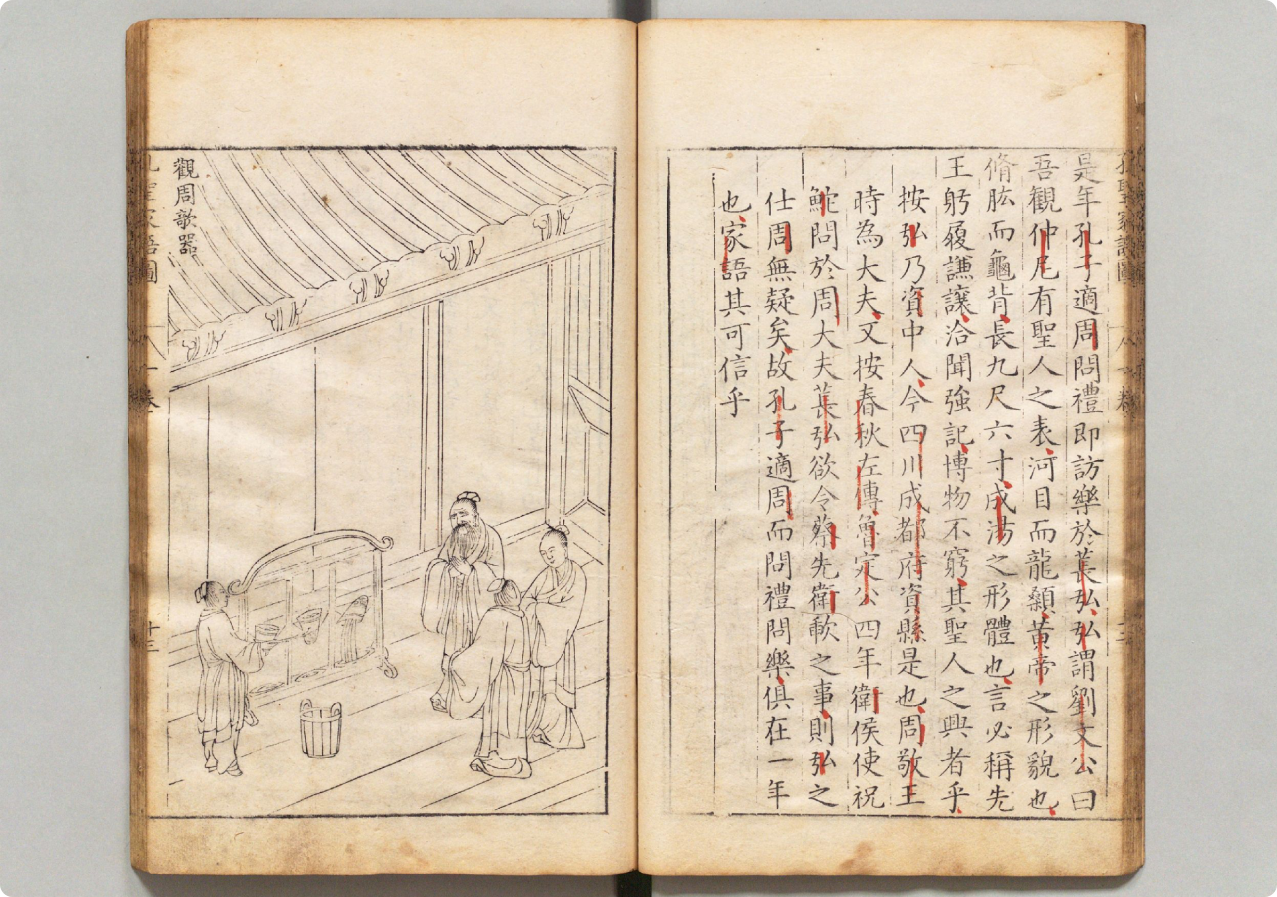 是年孔子適周問禮即訪樂於萇弘弘謂劉文公曰
吾觀仲尼有聖人之表河目而龍顙黄帝之形貌也
脩肱而龜背長九尺六寸成湯之形體也言必稱先
王躬履謙讓洽聞強記博物不窮其聖人之興者乎
按弘乃資中人今四川成都府資縣是也周敬王
時為大夫又按春秋左傳魯定公四年衛侯使祝
鮀問於周大夫萇弘欲令蔡先衛歃之事則弘之
仕周無疑矣故孔子適周而問禮問樂俱在一年
也家語其可信乎
觀周欹器
孔聖家語圖
八一卷
十三